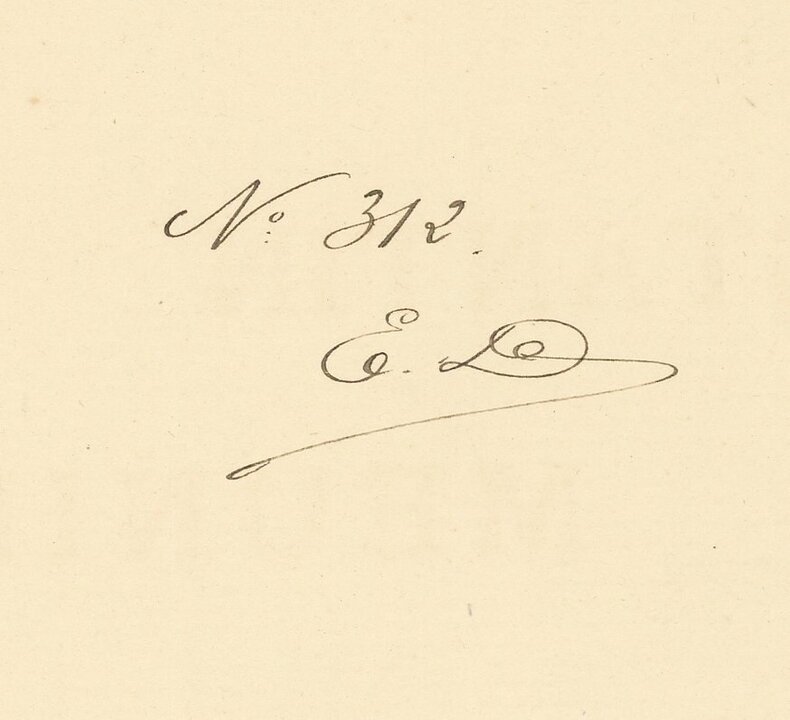 Nº 312.
E. D